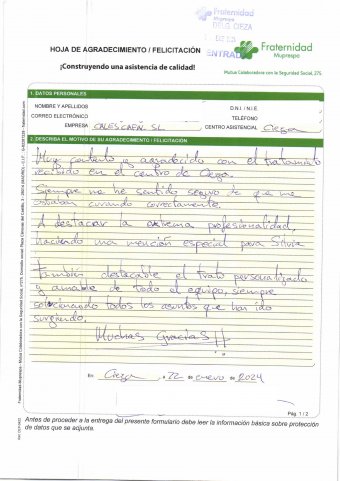 Fraternidad
Muprespa
DELG. CIEZA
ENTRADA
HOJA DE AGRADECIMIENTO / FELICITACIÓN
Fraternidad
Muprespa
¡Construyendo una asistencia de calidad!
Mutua Colaboradora con la Seguridad Social, 275
1. DATOS PERSONALES
NOMBRE Y APELLIDOS
D.N.I. / N.I.E.
CORREO ELECTRÓNICO
TELÉFONO
EMPRESA
SL
CENTRO ASISTENCIAL Cieza
2. DESCRIBA EL MOTIVO DE SU AGRADECIMIENTO / FELICITACIÓN
Muy contento y agradecido con el tratamiento
recibido en el centro de Cieza.
Siempre me he sentido seguro de que me
estaban curando correctamente.
A destacar la extrema profesionalidad,
haciendo una mención especial para Silvia
También destacable el trato personalizado
y amable de todo el equipo, siempre
solucionando todos los asuntos que han ido
surgiendo.
Muchas Gracias!!
En Cieza, a 22 de enero de 2024
Pág. 1 / 2
Antes de proceder a la entrega del presente formulario debe leer la información básica sobre protección
de datos que se adjunta.